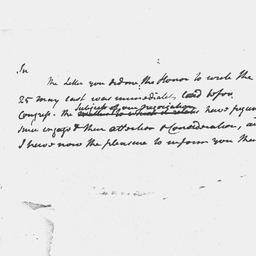 Sir
The Letter you did me the Honor to write the
25 May last was immediately laid before
Congress. The subjects of our negociations have
since engaged their attention & Consideration, an
I have now the pleasure to inform you tha